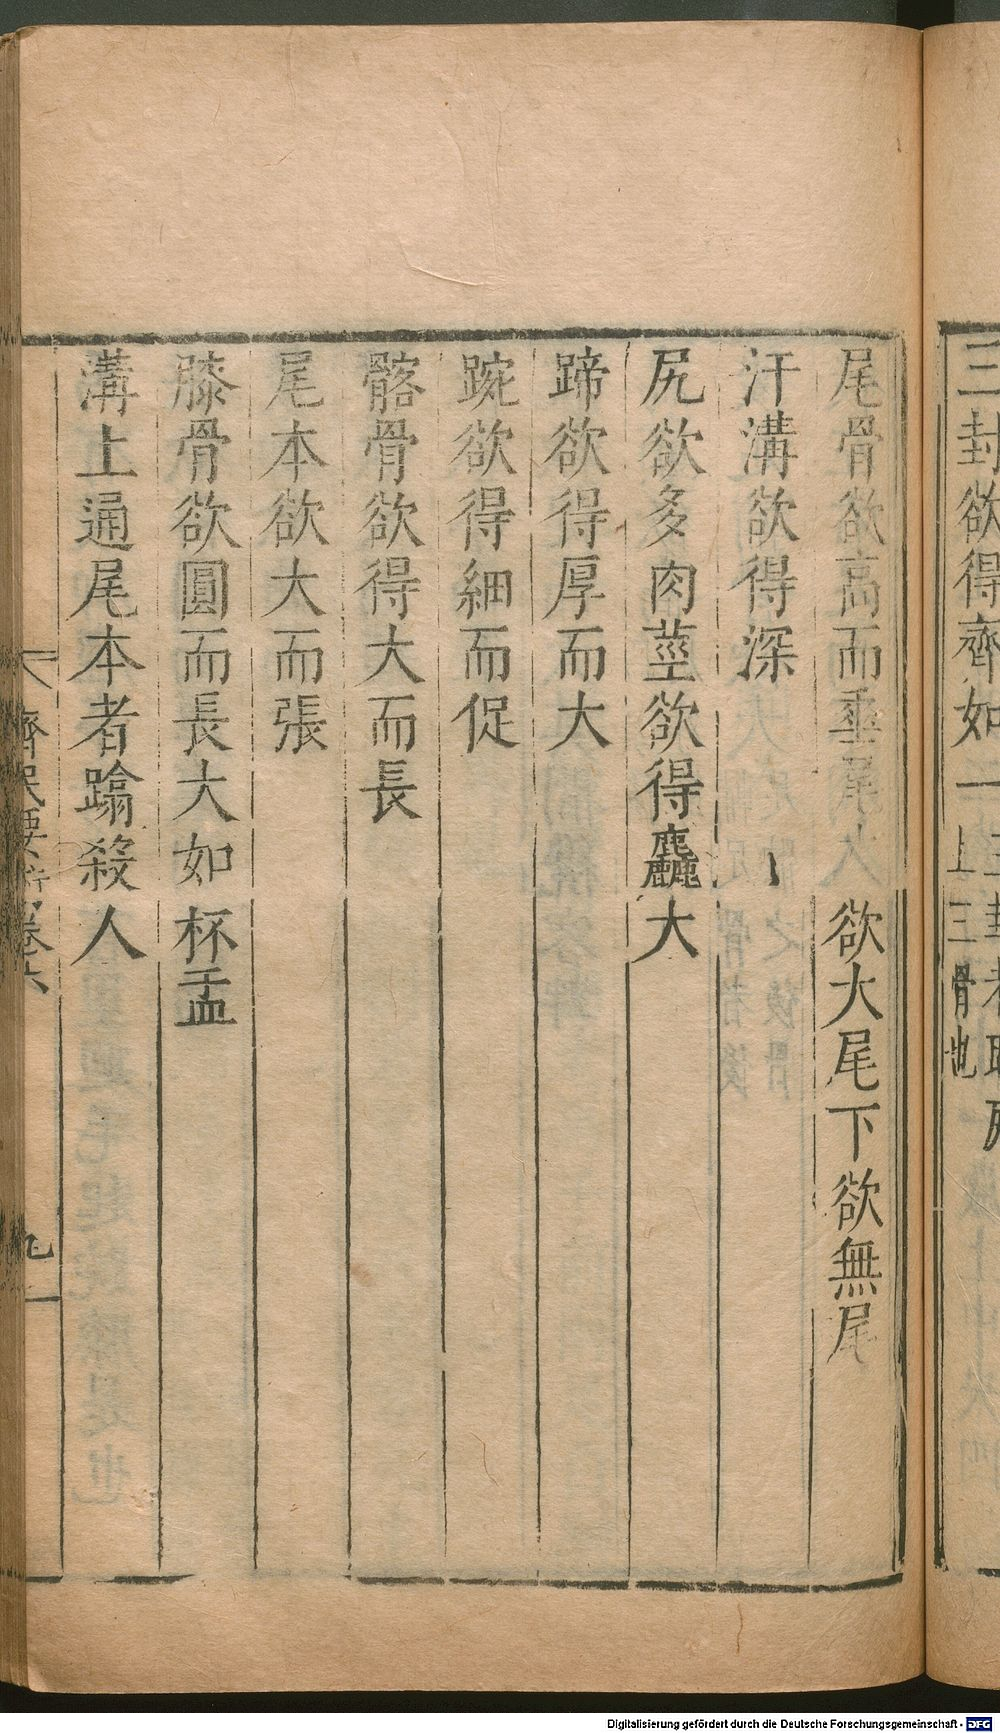 三封欲得齊如一
三封者
上三骨也
尾骨欲高而垂尾欲大尾下欲無尾
汗溝欲得深
尻欲多肉莖欲得麤大
蹄欲得厚而大
踠欲得細而促
髂骨欲得大而長
尾本欲大而張
膝骨欲圓而長大如杯盂
溝上通尾本者蹹殺人
齊民要術卷六
九
Digitalisierung gefördert durch die Deutsche Forschungsgemeinschaft - DFG